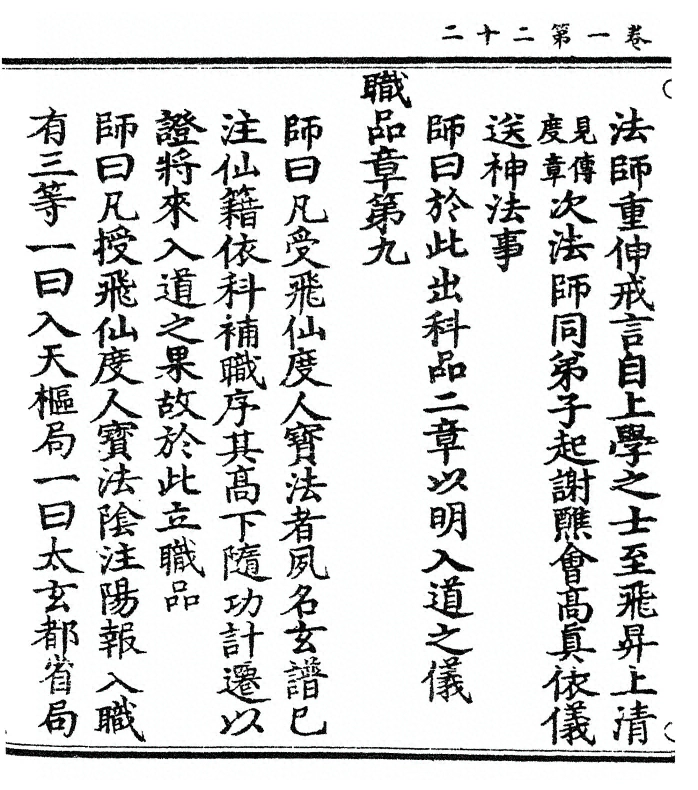 卷一第二十二
法師重伸戒言自上學之士至飛昇上清
見傳度章次法師同弟子起謝醮會高眞依儀
送神法事
師曰於此出科品二章以明入道之儀
職品章第九
師曰凡受飛仙度人寶法者夙名玄譜已
注仙籍依科補職序其高下隨功計遷以
證將來入道之果故於此立職品
師曰凡授飛仙度人寶法陰注陽報入職
有三等一曰入天樞局一曰太玄都省局